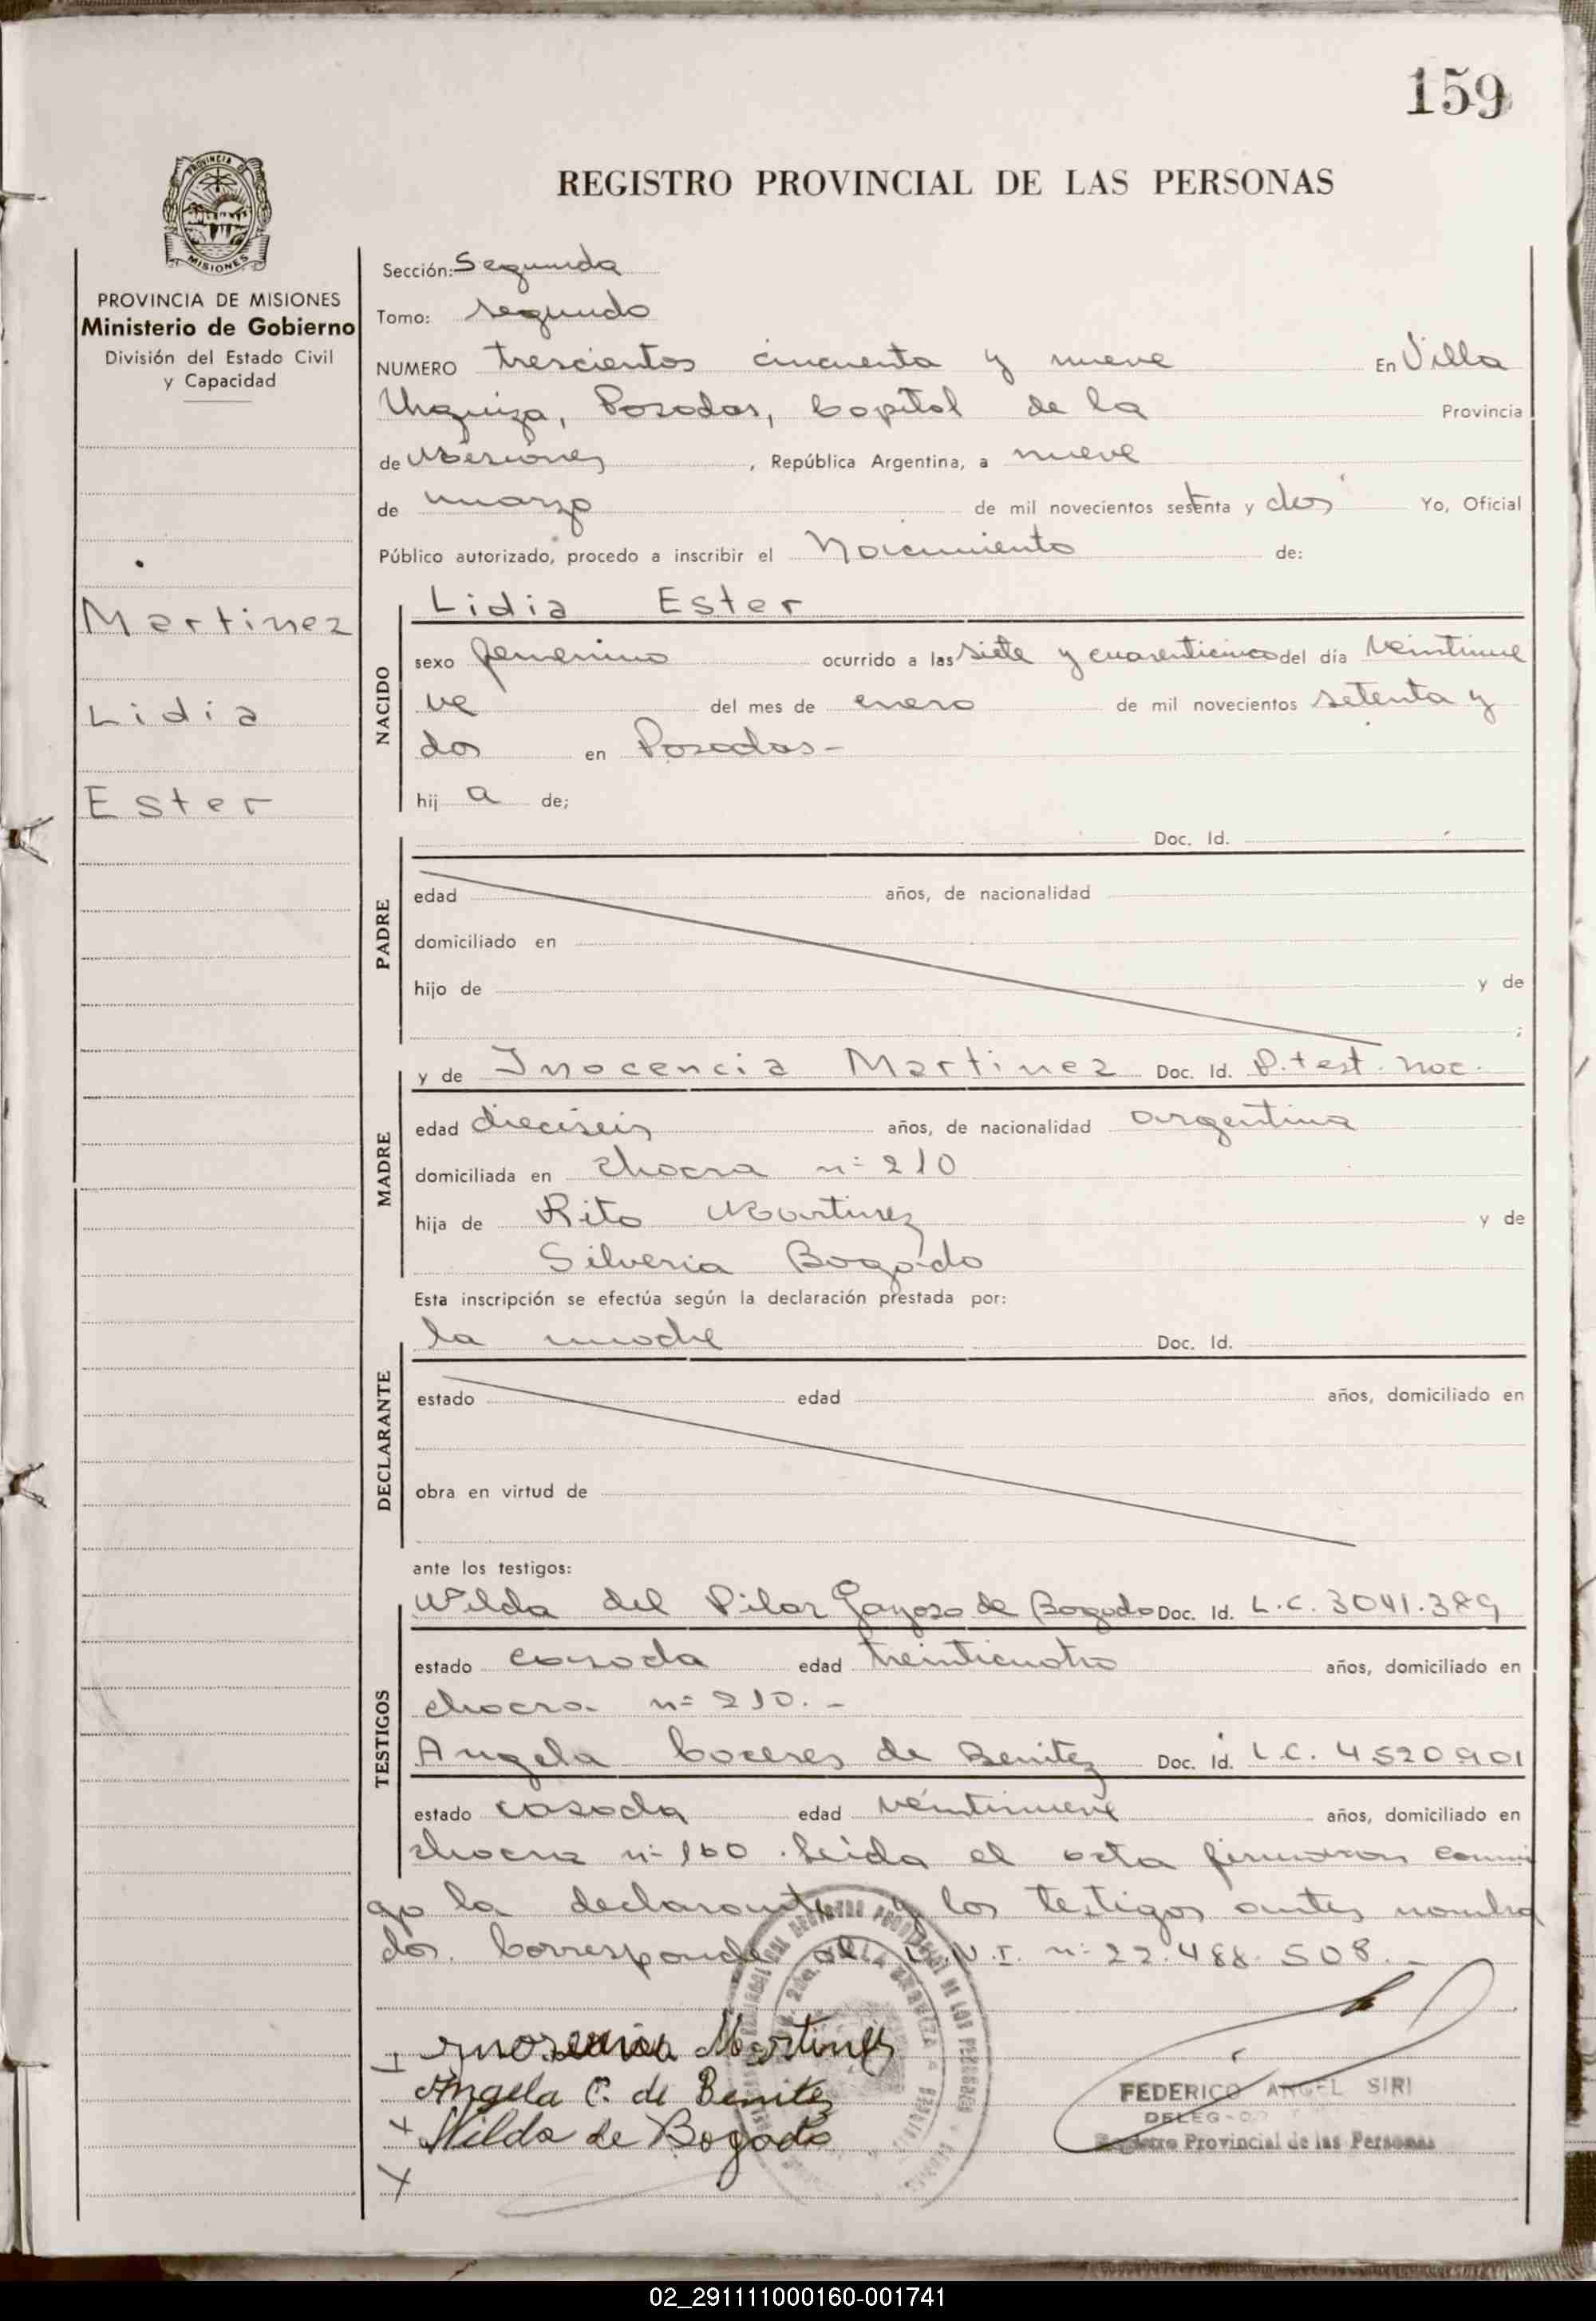 159
REGISTRO PROVINCIAL DE LAS PERSONAS
PROVINCIA DE
MISIONES
PROVINCIA DE MISIONES
Ministerio de Gobierno
División del Estado Civil
y Capacidad
Martinez
Lidia
Ester
Sección: Segunda
Tomo: segundo
NUMERO trescientos cincuenta y nueve En Villa
Urquiza, Posadas, Capital de la Provincia
de Misiones, República Argentina, a nueve
de marzo de mil novecientos setenta y dos Yo, Oficial
Público autorizado, procedo a inscribir el Nacimiento de:
NACIDO
Lidia Ester
sexo femenino ocurrido a las siete y cuarenticinco del día veintinue
ve del mes de enero de mil novecientos setenta y
dos en Posadas-
hij a de;
PADRE
Doc. Id.
edad años, de nacionalidad
domiciliado en
hijo de y de
;
MADRE
y de Inocencia Martinez Doc. Id. P. test. nac.
edad dieciseis años, de nacionalidad argentina
domiciliada en chacra n= 210
hija de Rito Martinez y de
Silveria Bogado
Esta inscripción se efectúa según la declaración prestada por:
DECLARANTE
la madre Doc. Id.
estado edad años, domiciliado en
obra en virtud de
ante los testigos:
TESTIGOS
Wilda del Pilar Gayoso de Bogado Doc. Id. L.C. 3041.389
estado casada edad treinticuatro años, domiciliado en
chacra n= 210.-
Angela Caceres de Benitez Doc. Id. L.C. 4520901
estado casada edad veintinueve años, domiciliado en
chacra n= 160. Leida el acta firmaron conmi
go la declarante y los testigos antes nombra
dos. Corresponde al D.N.I. n= 22.488.508.-
Inosencia Martinez
Angela C. de Benitez
Wilda de Bogado
VILLA URQUIZA
FEDERICO ANGEL SIRI
Registro Provincial de las Personas
02_291111000160-001741